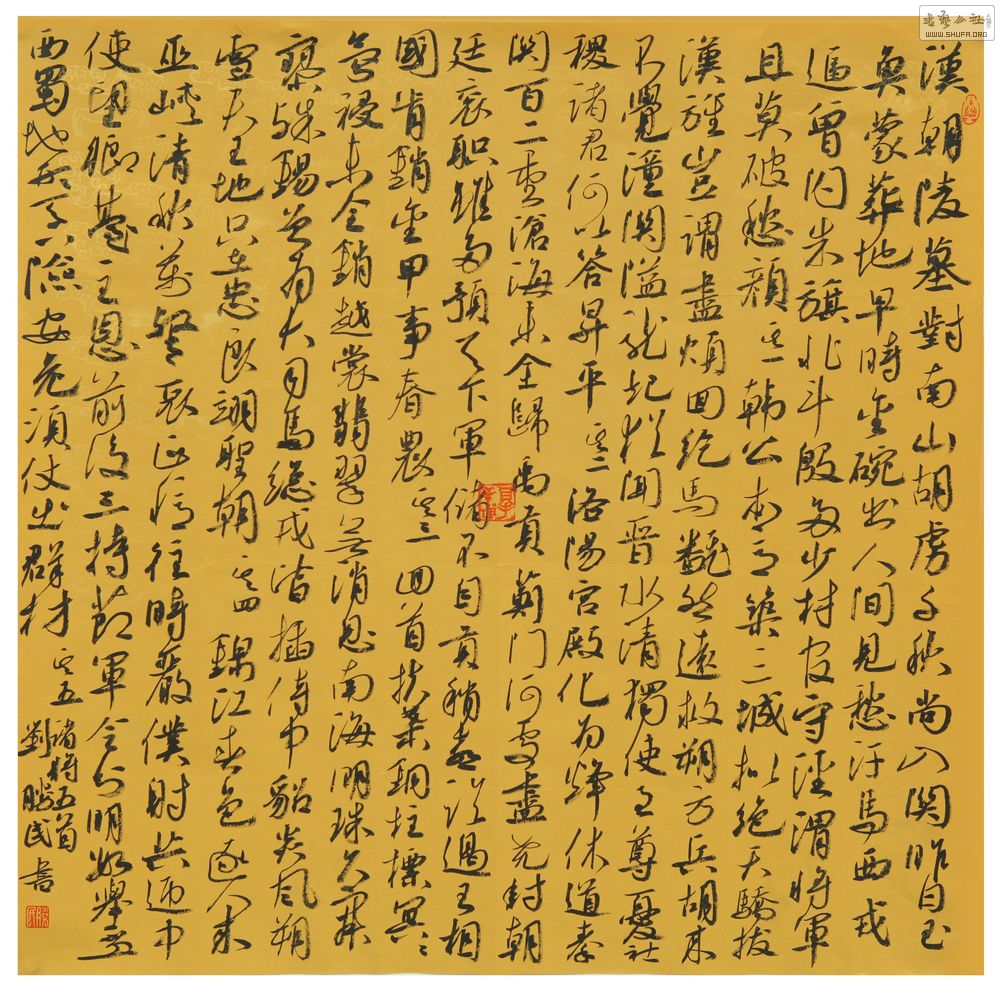 漢朝陵墓對南山胡虜千秋尚入関昨日玉
魚蒙葬地早時金碗出人间見愁汗馬西戎
逼曾闪朱旗北斗殷多少材官守涇渭將軍
且莫破愁顏其一韓公本意築三城擬絕天驕拔
漢旌豈謂盡煩回纥馬翻然遠救朔方兵胡来
不覺潼関隘龍起猶聞晋水清獨使至尊憂社
稷諸君何以答昇平其二洛陽宫殿化为烽休道秦
関百二重滄海未全歸禹貢薊门何處盡尧封朝
廷衮职雖多預天下軍儲不自貢稍喜临邊王相
國肯銷金甲事春農其三回首扶桑銅柱標冥々
氛祲未全銷越裳翡翠無消息南海明珠久寂
寥殊錫曾为大司馬總戎皆插侍中貂炎風朔
雪天王地只在忠良翊聖朝其四錦江春色逐人来
巫峽清秋萬壑哀正憶往時嚴僕射共迎中
使望鄉臺主恩前後三持節軍令分明數舉盃
西蜀地形天下險安危須仗出群材其五
諸將五首
劉勝民書
書藝公社
WWW.SHUFA.ORG